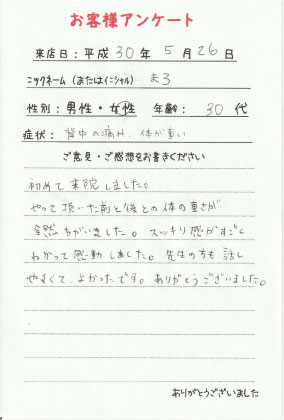 お客様アンケート
来店日：平成30年5月26日
ニックネーム（またはイニシャル） まろ
性別：男性・女性 年齢：30代
症状：背中の痛み、体が重い
ご意見・ご感想をお書きください
初めて来院しました。
やって頂いた前と後との体の重さが
全然ちがいました。スッキリ感がすごく
わかって感動しました。先生の方も話し
やすくて、よかったです。ありがとうございました。
ありがとうございました